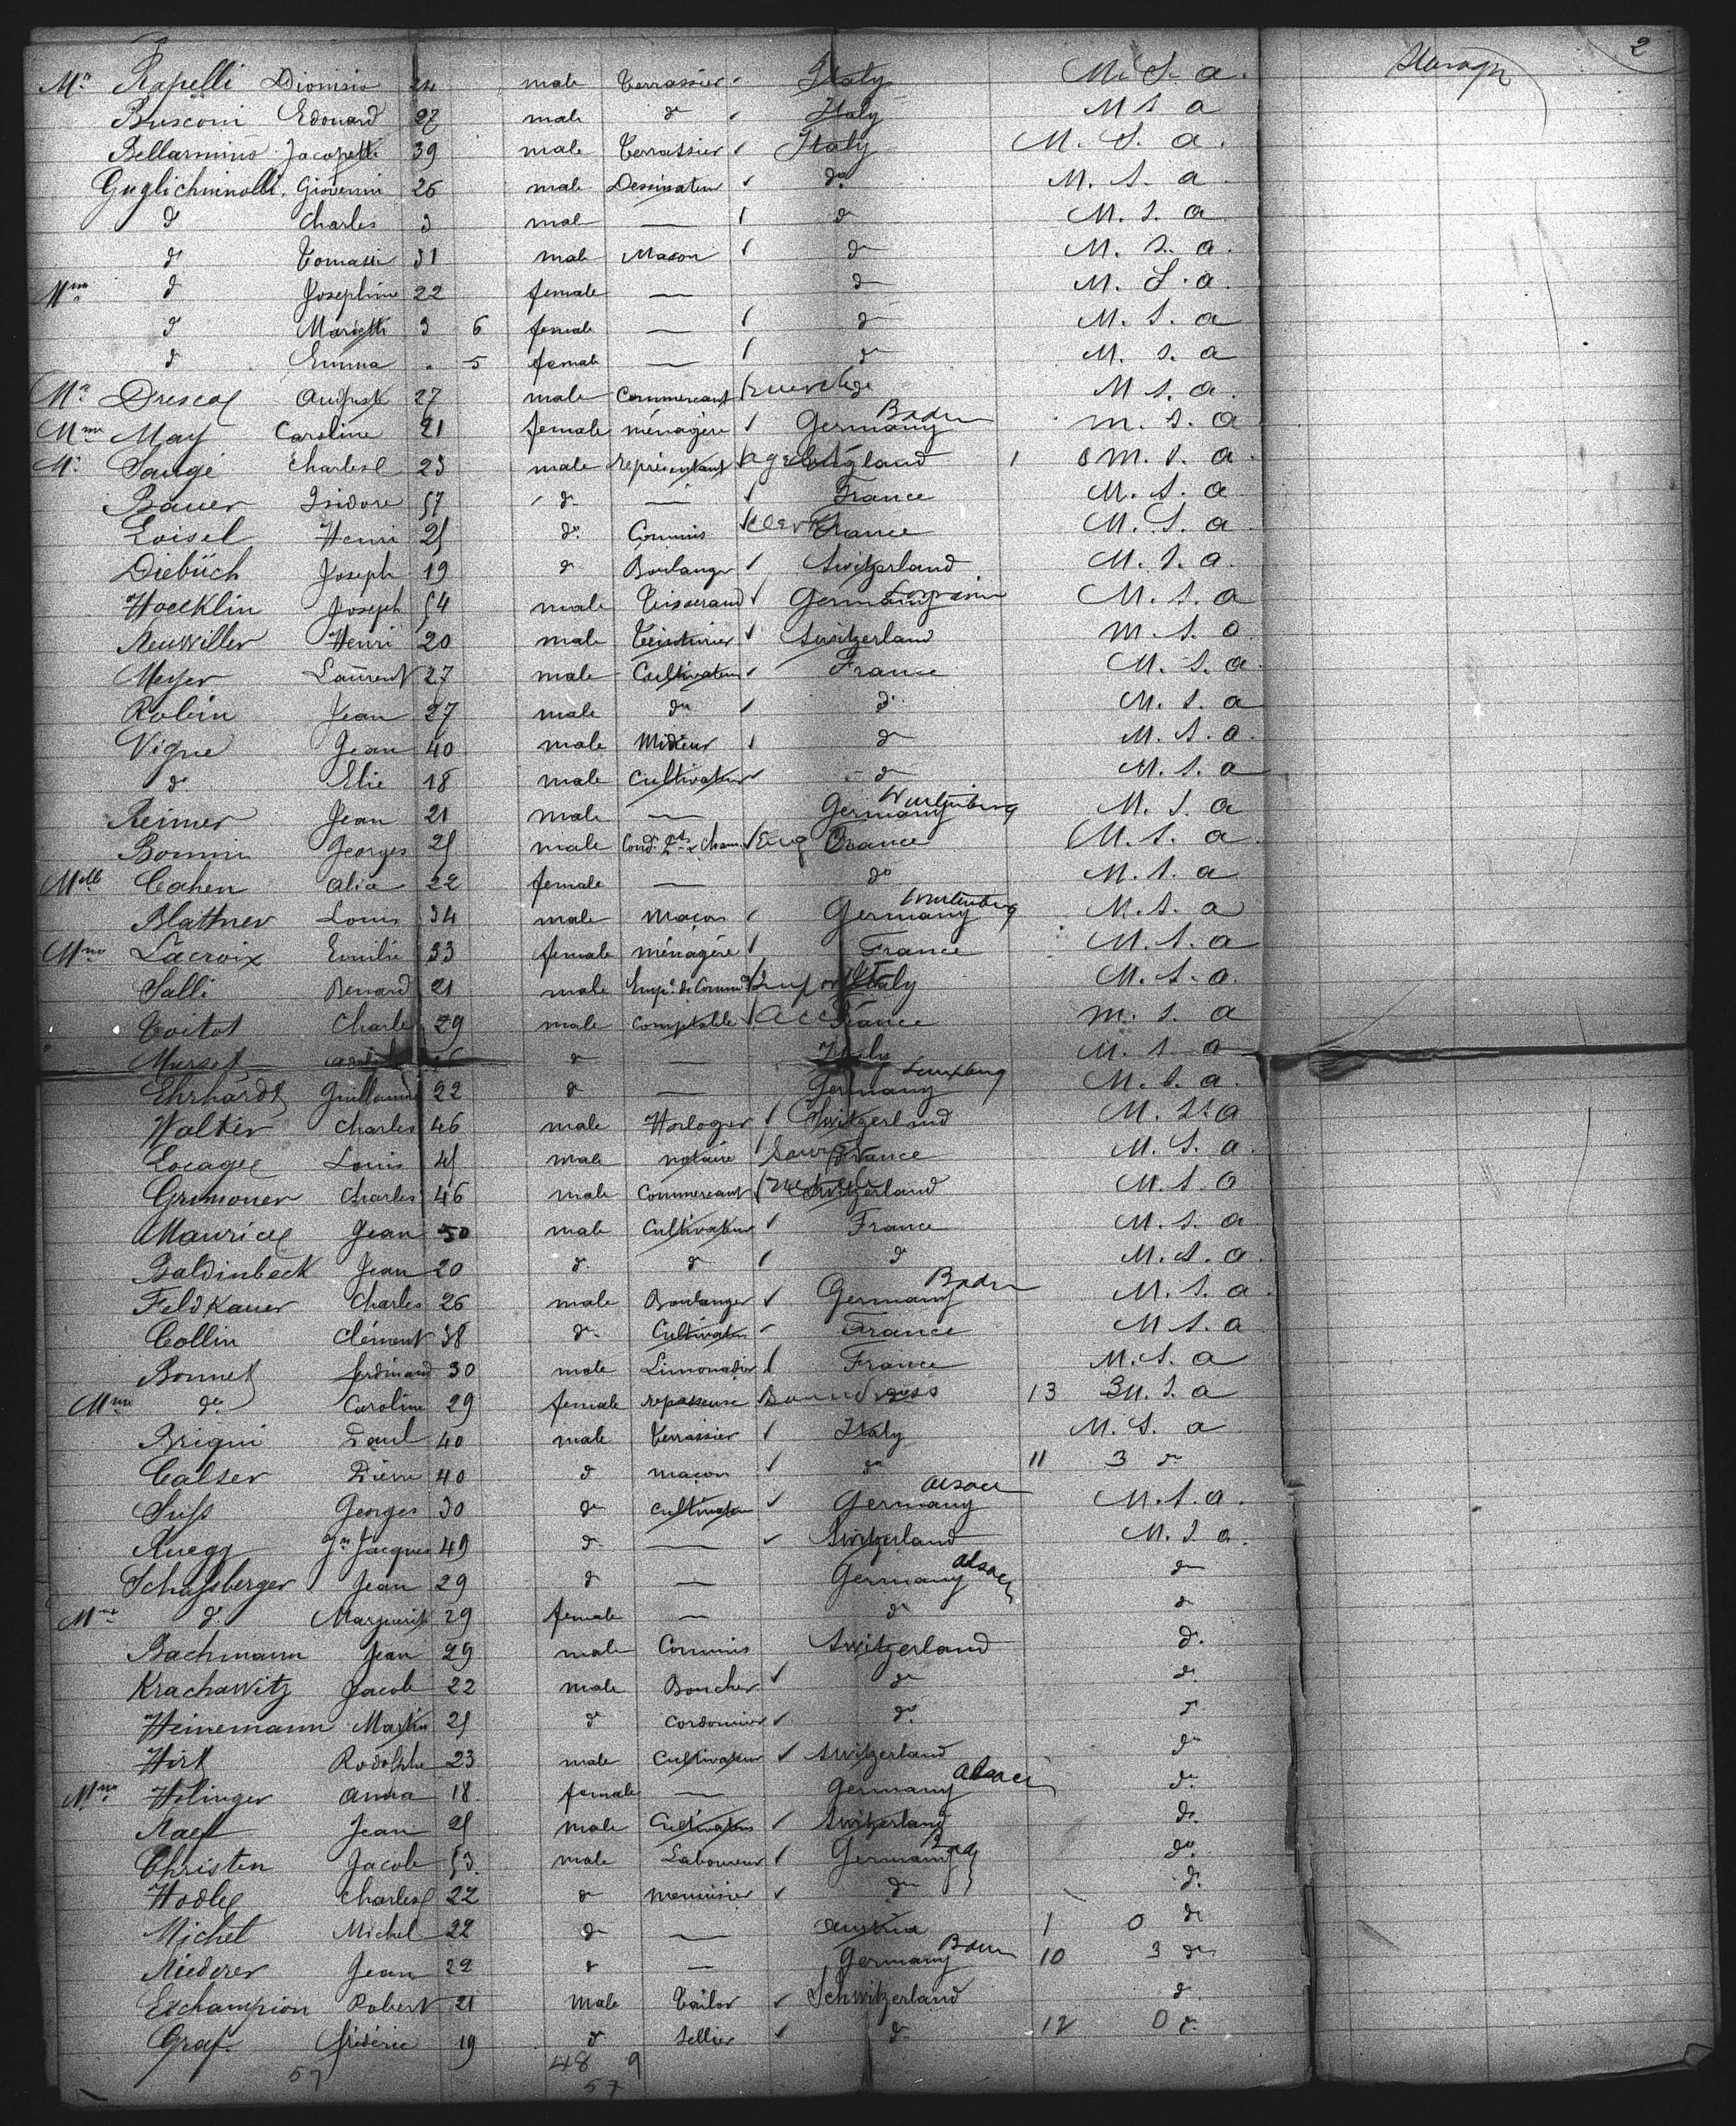 2
Mr Rapelli Dionisio 24 male Terrassier Italy M. S. a.
Busconi Edouard 27 male do Italy M S a
Bellarmino Jacopetti 39 male Terrassier Italy M. S. a.
Guglichminolli Giovanni 26 male Dessinateur do M. S. a
do Charles 3 mal — do M. S. a
do Tomasi 31 male Mason do M. S. a.
Mme do Josephine 22 female — do M. S. a.
do Marietti 3 6 female — do M. S. a
do Emma . 5 female — do M. S. a
Mr Drescal August 27 male Commercant do M S. a.
Mme May Caroline 21 female ménagère Germany Baden m. S. a
Mr Saugé Charles 23 male représentant England 1 0 M. S. a.
Bauer Isidore 57 do — France M. S. a
Loisel Henri 25 do Commis Clerk France M. S. a
Diebüch Joseph 19 do Boulanger Switzerland M. S. a.
Hoecklin Joseph 54 male Tisserand Germany M. S. a
Neuwiller Henri 20 male Teinturier Switzerland M. S. a
Meyer Laurent 27 male Cultivateur France M. S. a.
Robin Jean 27 male do do M. S. a
Vigne Jean 40 male do M. S. a.
do Elie 18 male Cultivateur do M. S. a
Reimer Jean 21 male — Germany Wurtemberg M. S. a
Bonnin Georges 25 male France M. S. a
Melle Cahen alia 22 female — do M. S. a
Blattner Louis 34 male Maçon Germany Wurtemberg M. S. a
Mme Lacroix Emilie 33 female ménagère France M. S. a
Salli Renard 21 male Italy M. S. a.
Toitot Charles 29 male Comptable Acc France m. S. a
do — Italy M. S. a
Ehrhardt Guillaume 22 do — Germany M. S. a.
Walter Charles 46 male Horloger Switzerland M. S. a
Locagel Louis 45 male notaire France M. S. a.
Grimoner Charles 46 male Commercant Switzerland M. S. a
Mauricel Jean 50 male Cultivateur France M. S. a
Baldinbeck Jean 20 do do do M. S. a.
Feldkauer Charles 26 male Boulanger Germany Baden M. S. a.
Collin Clément 38 do Cultivateur France M S. a
Bonnet ferdinand 30 male Limonadier France M. S. a
Mme do Caroline 29 female repasseuse 13 3 M. S. a
Brigni Paul 40 male Terrassier Italy M. S. a
Calser Pierre 40 do maçon do 11 3 do
Suss Georges 30 do Cultivateur Germany alsace M. S. a.
Ruegg Jn Jacques 49 do — Switzerland M. S a.
Schafsberger Jean 29 do — Germany alsace do
Mme do Marguerite 29 female — do do
Bachmann Jean 29 male Commis Switzerland do
Krachawitz Jacob 22 male Boucher do do
Heinemann Martin 25 do Cordonnier do do
Hirt Rodolphe 23 male Cultivateur Switzerland do
Mme Holinger anna 18 female — Germany alsace do
Naef Jean 25 male Cultivateur Switzerland do
Christen Jacob 53 male Laboureur Germany do
Hodel Charles 22 do menuisier do do
Michel Michel 22 do — Austria 1 0 do
Niederer Jean 22 do — Germany Baden 10 3 do
Exchampion Robert 21 Male Tailor Schwitzerland do
Graf frédéric 19 do Sellier do 12 0 do
57 48 9
57